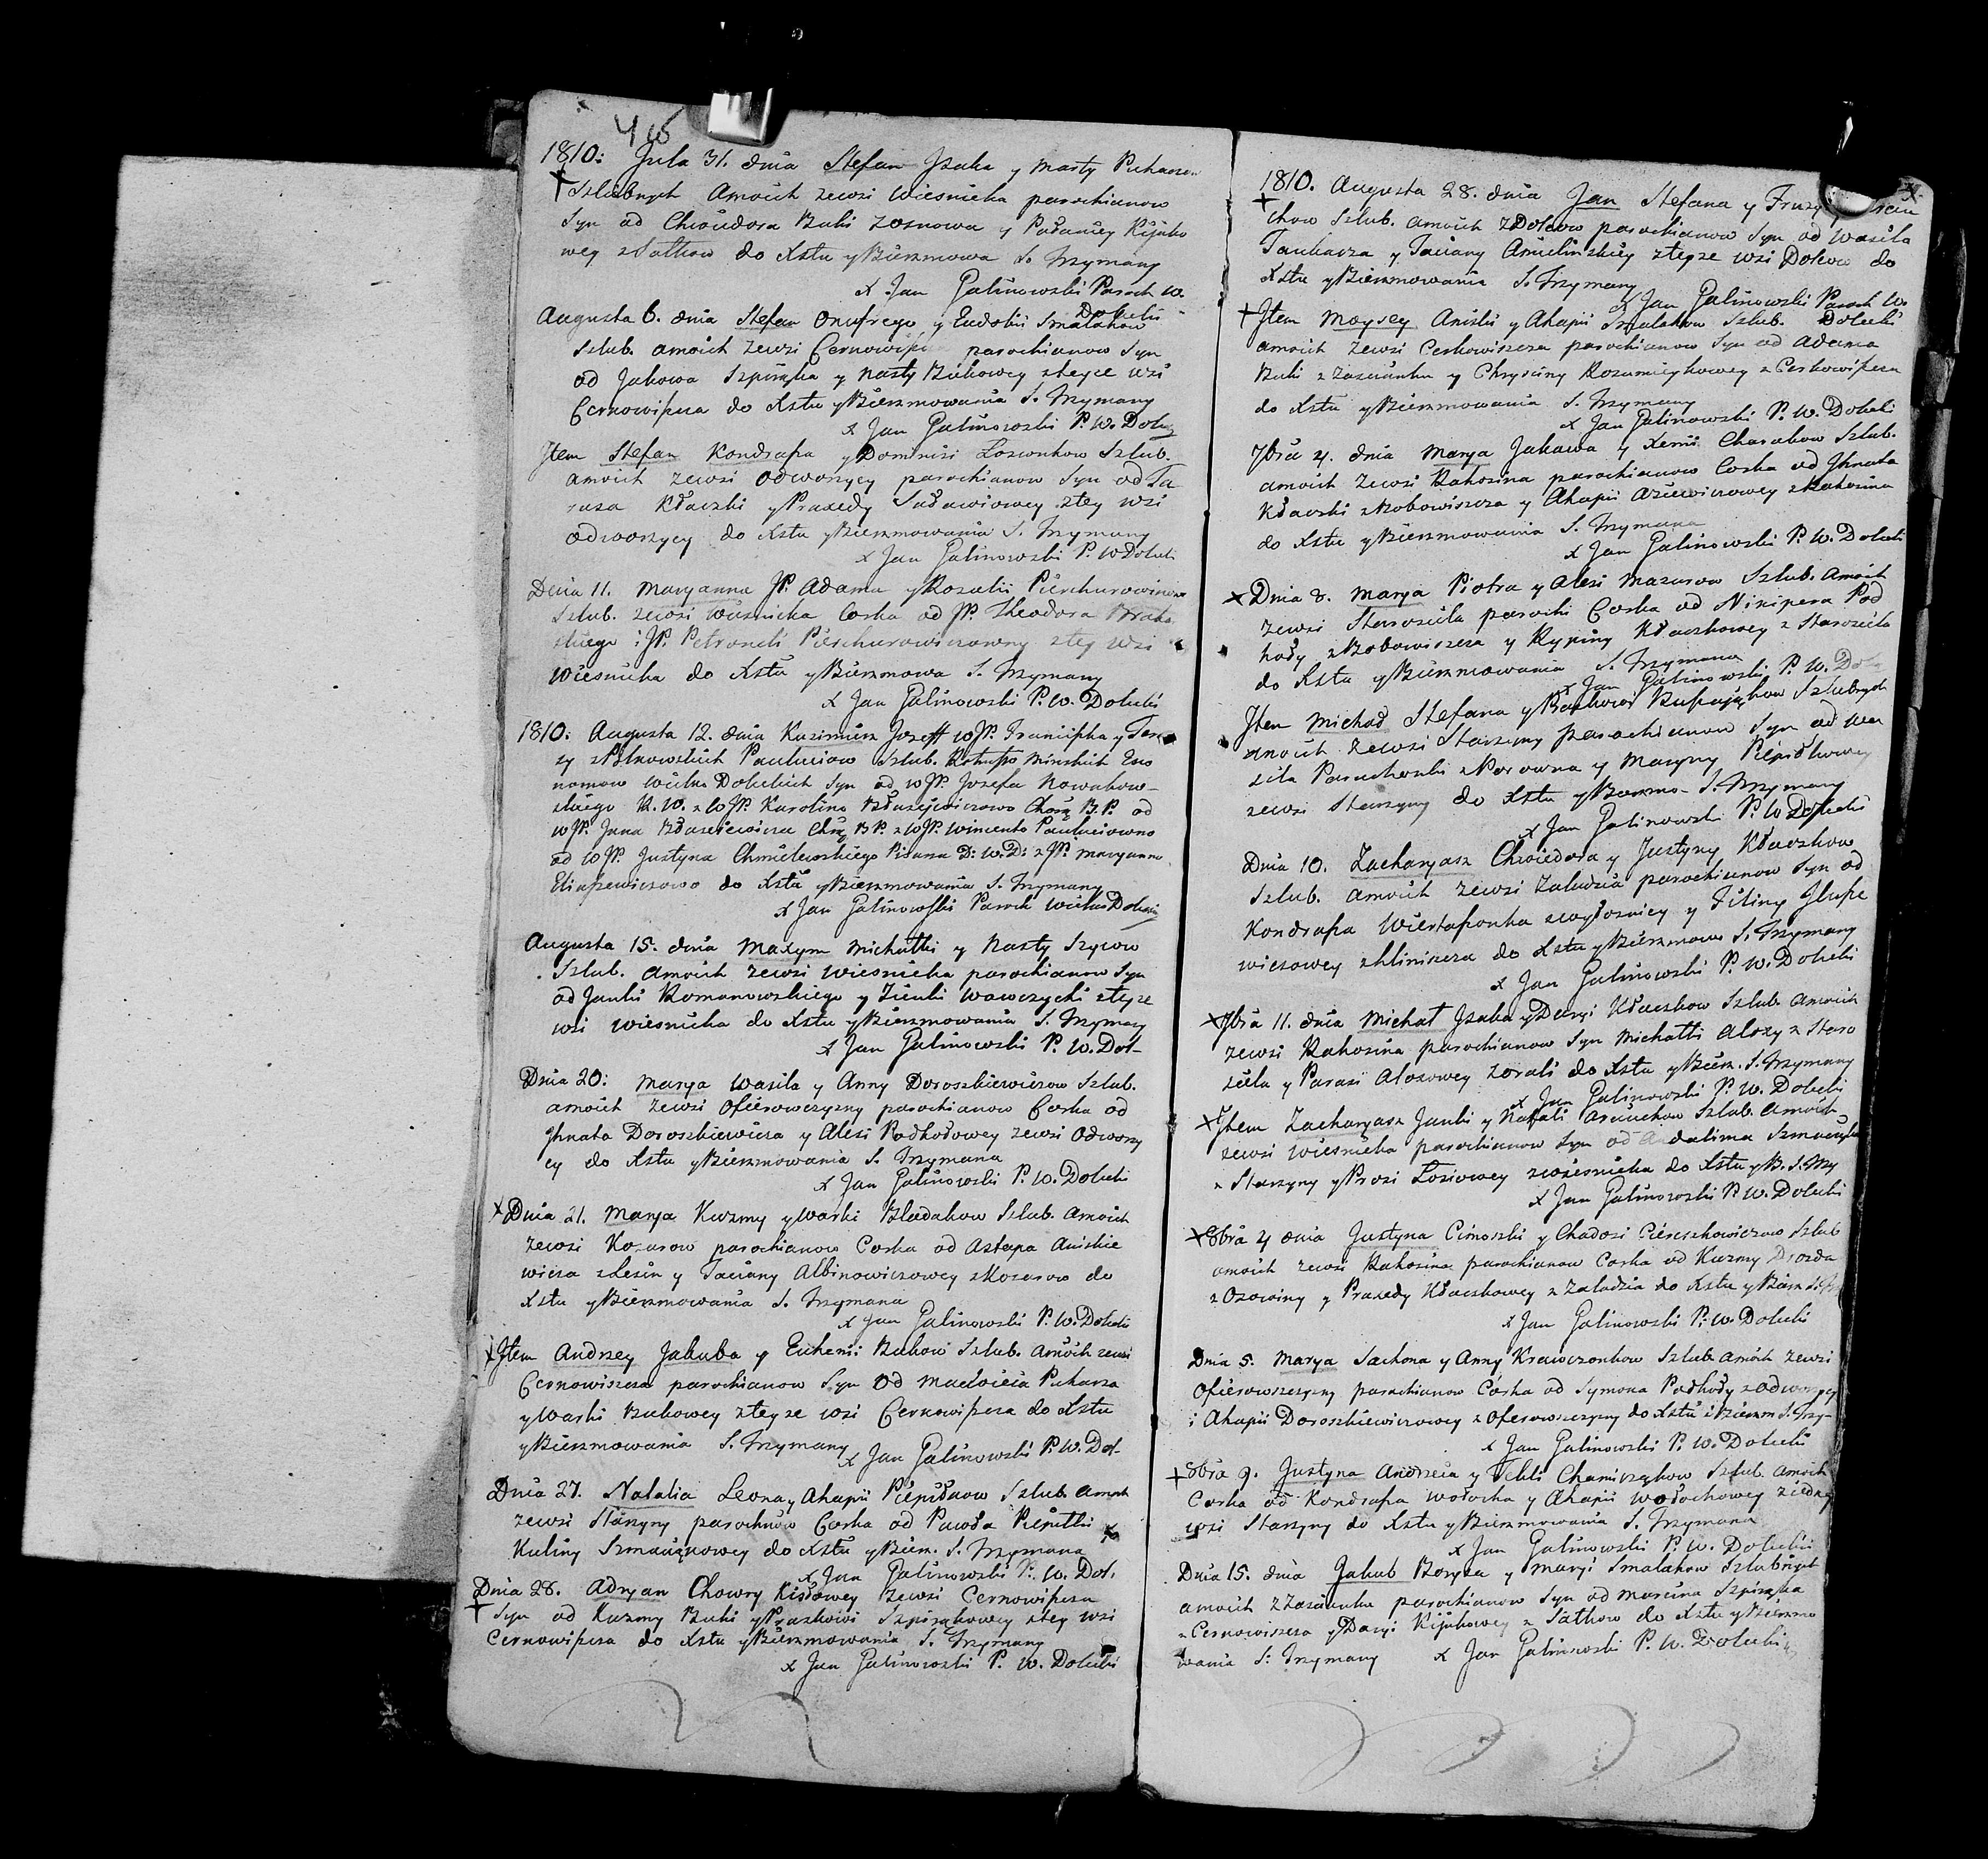 1810: Jula 31. dnia Stefan Jzaka y Marty
Szlubnych Amoich zewsi Wiesnicka parochianow
Syn od Chwiedora Buki zosnowa y Pałaniey Kijako
wey z Satkow do Xstu y Bierzmowa S. Trzymany
x Jan Galinowski Paroch W.
Dołucki
Augusta 6. dnia Stefan Onufrego y Eudokii Smalakow
Szlub. amoich zewsi parochianow Syn
od Jakowa Szpiręka y Nasty Bukowey zteyze wsi
Cernowiszcza do Xstu y Bierzmowania S. Trzymany
x Jan Galinowski P. W. Doluc
Jtem Stefan Kondrata y Dominisi Szlub.
amoich zewsi Odworzycy parochianow Syn od Ta
rasa Kłaczki y Praxedy ztey wsi
Odworzycy do Xstu y Bierzmowania S. Trzymany
x Jan Galinowski P. W Dolucki
Dnia 11. Maryanna JP. Adama y Rozalii
Szlub. zewsi Wiesnicka Corka od JP. Theodora
skiego i JP. Petroneli ztey wsi
Wiesnicka do Xstu y Bierzmowa S. Trzymany
x Jan Galinowski P. W. Dolucki
1810: Augusta 12. dnia Kazimierz Jozeff WJP. Franciszka y Tere
zy Szlub. Eko
nomow Wielko Doluckich Syn od WJP. Jozefa Nowakow-
skiego R. W. z WJP. Karolino Chorą B. P. od
WJP. Jana Chrą B P. z WJP. Wincento
od WJP. Justyna Chmielewskiego Pisarza D: W. D: z JP. Maryanno
do Xstu y Bierzmowania S. Trzymany
x Jan Galinowski Paroch Wielko Dolucki
Augusta 15. dnia Maxym Michałki y Nasty Szycow
Szlub. amoich zewsi Wiesnicka parochianow Syn
od Janki Romanowskiego y Zienki Wawrzycki zteyze
wsi Wiesnicka do Xstu y Bierzmowania S. Trzymany
x Jan Galinowski P. W. Dol-
Dnia 20: Marya Wasila y Anny Doroszkiewiczow Szlub.
amoich zewsi Ofierowszczyzny parochianow Corka od
Jhnata Doroszkiewicza y Alesi Podhołowey zewsi Odworzy
cy do Xstu y Bierzmowania S. Trzymana
x Jan Galinowski P. W. Dolucki
Dnia 21. Marya Kuzmy y Warki Hladakow Szlub. Amoich
zewsi Kozarow parochianow Corka od Astapa Aniskie
wicza z Lesin y Taciany Albinowiczowey z Kozarow do
Xstu y Bierzmowania S. Trzymana
x Jan Galinowski P. W. Dolucki
Jtem Andrzey Jakuba y Euhenii Bukow Szlub. Amoich zewsi
Cernowiszcza parochianow Syn od Macieia Puharza
y Warki Bukowey zteyze wsi Cernowiszcza do Xstu
y Bierzmowania S. Trzymany
x Jan Galinowski P. W. Dol-
Dnia 27. Natalia Leona y Ahapii Szlub. Amoich
zewsi Starzyny parochnow Corka od Pawła
Kuliny do Xstu y Bierz. S. Trzymana
x Jan Galinowski P. W. Dol.
Dnia 28. Adryan Chowry Kisłowey zewsi Cernowiszcza
Syn od Kuzmy Buki y Praskowi Szpirękowey ztey wsi
Cernowiszcza do Xstu y Bierzmowania S. Trzymany
x Jan Galinowski P. W. Dolucki
1810. Augusta 28. dnia Jan Stefana y
chow Szlub. amoich z Dolcow parochianow Syn od Wasila
y Taciany zteyze wsi Dolcow do
Xstu y Bierzmowania S. Trzymany
x Jan Galinowski Paroch W.
Dolucki
Jtem Moysey Aniski y Ahapii Smalakow Szlub.
amoich zewsi Cerkowiszcza parochianow Syn od Adama
Buki z Zascianku y Chrysciny z Cerkowiszcza
do Xstu y Bierzmowania S. Trzymany
x Jan Galinowski P. W. Dolucki
7bra 4. dnia Marya Jakowa y Xenii Charukow Szlub.
amoich zewsi Kahosina parochianow Corka od Jhnata
Kłaczki z Bobowiszcza y Ahapii z Kahosina
do Xstu y Bierzmowania S. Trzymana
x Jan Galinowski P. W. Dolucki
Dnia 8. Marya Piotra y Alesi Mazurow Szlub. amoich
zewsi Starosiela parochi Corka od Nikipera Pod
hoły z Bobowiszcza y Kypiny Kłaczkowey z Starosiela
do Xstu y Bierzmowania S. Trzymana
x Jan Galinowski P. W.
Jtem Michał Stefana y Szlubnych
amoich zewsi Starzyny parochianow Syn od Wa
sila y Maryny
zewsi Starzyny do Xstu y Bierzmo- S. Trzymany
x Jan Galinowski P. W Dolucki
Dnia 10. Zacharyasz Chwiedora y Justyny Kłaczkow
Szlub. amoich zewsi Zaludzia parochianow Syn od
Kondrata y Filiny Hlupe
wiczowey do Xstu y Bierzmowa S. Trzymany
x Jan Galinowski P. W. Dolucki
7bra 11. dnia Michał Jzaka y Daryi Kłaczkow Szlub. Amoich
zewsi Kahosina parochianow Syn Michałki z Staro
siela y Parasi do Xstu y Bierz. S. Trzymany
x Jan Galinowski P. W. Dolucki
Jtem Zacharyasz Janki y Natali Szlub. amoich
zewsi Wiesnicka parochianow Syn od
z Starzyny y Prosi Łosiowey zwiesnicka do Xstu y B. S. Trzy
x Jan Galinowski P. W. Dolucki
8bra 4 dnia Justyna Cimoszki y Chadosi Szlub
amoich zewsi Kahosina parochianow Corka od Kuzmy Drozda
z Osowiny y Praxedy Kłaczkowey z Zaludzia do Xstu y Bierz
x Jan Galinowski P. W. Dolucki
Dnia 5. Marya Sachona y Anny Krawczonkow Szlub. amoich zewsi
Ofierowszczyzny parochianow Córka od Symona Podhoły z Odworzycy
i Ahapii Doroszkiewiczowey z Ofierowszczyzny do Xstu i Bierzm S. Trzy-
x Jan Galinowski P. W. Dolucki
8bra 9. Justyna Andrzeia y Tekli Szlub. Amoich
Corka od Kondrata Wołocha y Ahapii Wołochowey ziedney
wsi Starzyny do Xstu y Bierzmowania S. Trzymana
x Jan Galinowski P. W. Dolucki
Dnia 15. dnia Jakub Borysa y Maryi Smalakow Szlubnych
amoich z Zascianku parochianow Syn od Marcina Szpiręka
z Cernowiszcza y Daryi Kijakowey z Satkow do Xstu y Bierzmo
wania S: Trzymany x Jan Galinowski P. W. Dolucki